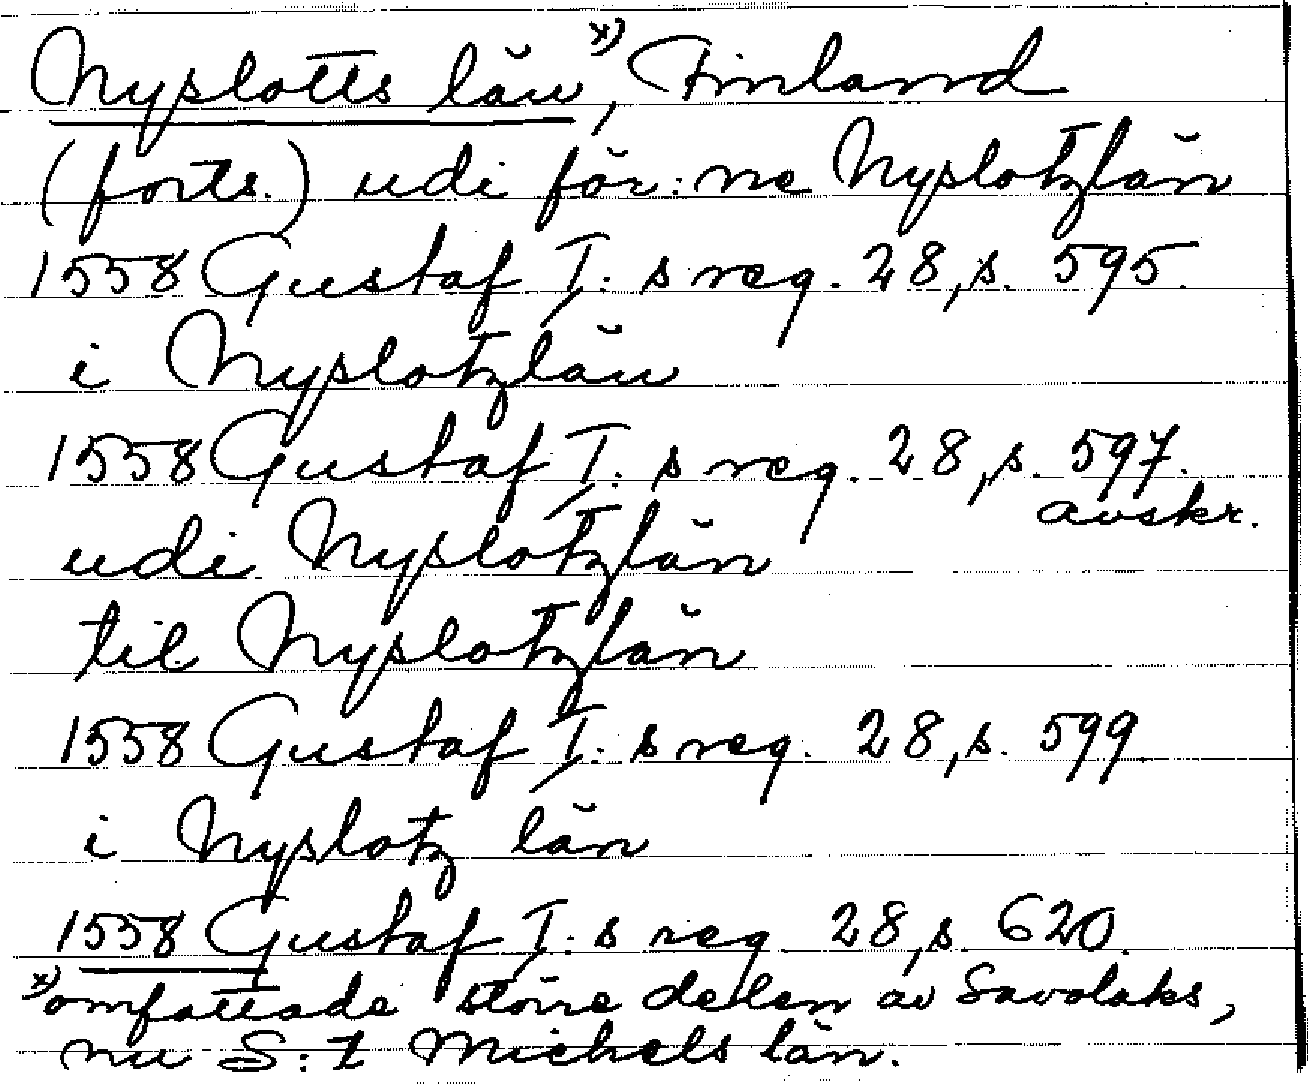 Nyslotts län x), Finland
(forts.) udi för:ne Nyslotzlän
1558 Gustaf I:s reg. 28, s. 595.
i Nyslotzlän
1558 Gustaf I:s reg. 28, s. 597.
avskr.
udi Nyslotzlän
til Nyslotzlän
1558 Gustaf I:s reg. 28, s. 599
i Nyslotz län
1558 Gustaf I:s reg. 28, s. 620.
x) omfattade större delen av Savolaks,
nu S:t Michels län.